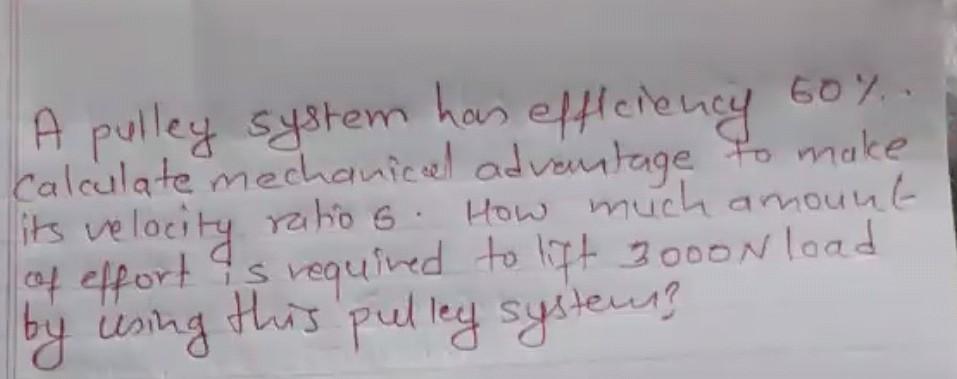 A pulley system has efficiency 60%..
Calculate mechanical advantage to make
its velocity ratio 6. How much amount
of effort is required to lift 3000N load
by using this pulley system?